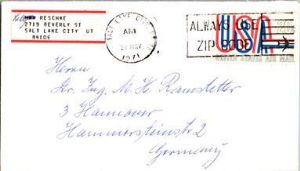 RESCHKE
2719 BEVERLY ST
SALT LAKE CITY UT
84106
SALT LAKE CITY
AM
1971
ALWAYS USE
ZIP CODE
USA
Herrn
Dr. Ing. M. H. Raustetter
3 Hannover
Hammersteinstr. 2
Germany